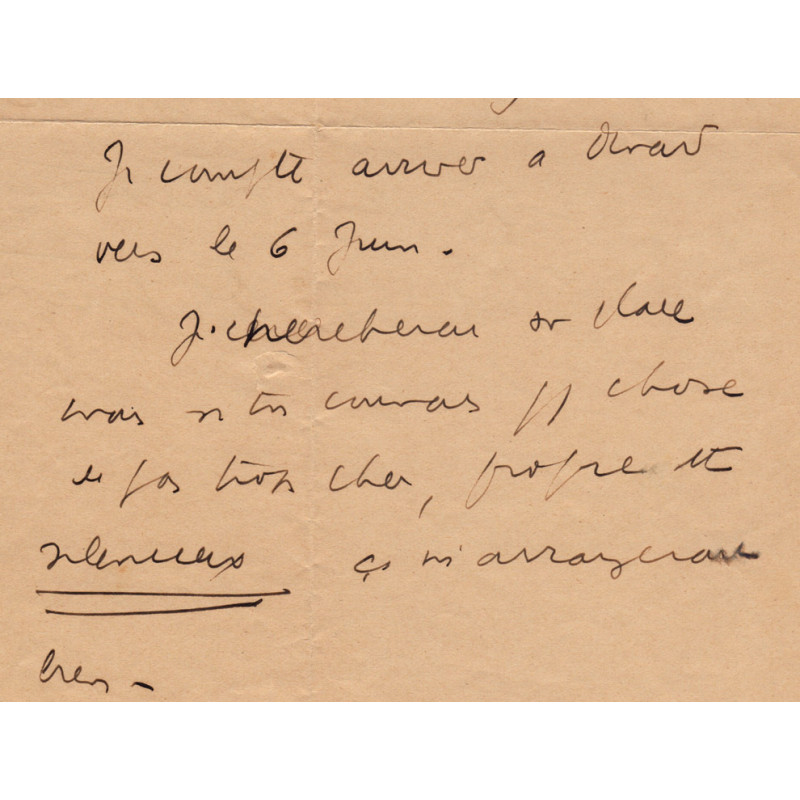 Je compte arriver à Dinard
vers le 6 Juin.
Je chercherai sur place
mais si tu connais qq chose
de pas trop cher, propre et
silencieux ça m'arrangerait
bien -